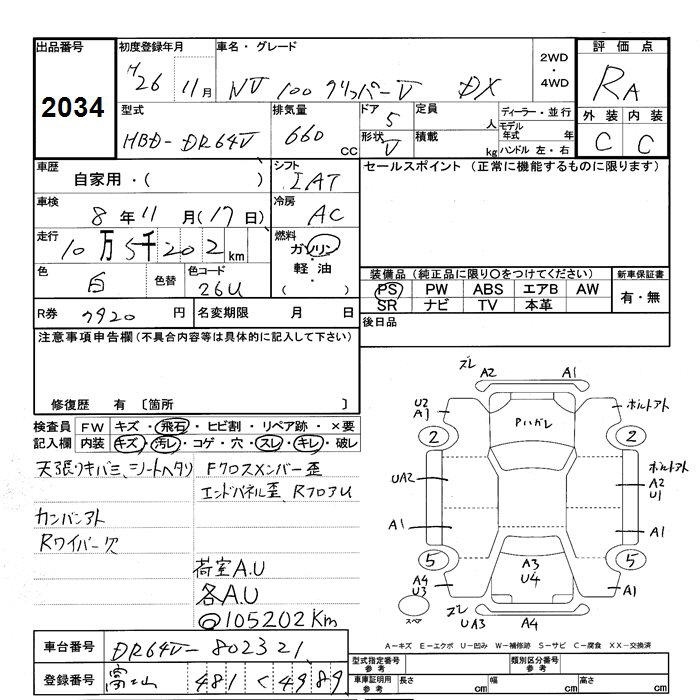 出品番号
2034
初度登録年月
H26 11月
車名・グレード
NV 100 クリッパーV DX
2WD
・
4WD
評価点
RA
外装 内装
C C
型式
HBD-DR64V
排気量
660 CC
ドア
5
形状
V
定員
人
積載
kg
ディーラー・並行
モデル年式 年
ハンドル 左・右
車歴
自家用・( )
シフト
IAT
車検
8年11月(17日)
冷房
AC
走行
10万5千202km
燃料
ガソリン
・
軽油
・
( )
色
白
色替
色コード
26U
R券 7920 円
名変期限 月 日
セールスポイント (正常に機能するものに限ります)
装備品 (純正品に限り〇をつけてください)
PS PW ABS エアB AW
SR ナビ TV 本革
新車保証書
有・無
後日品
注意事項申告欄 (不具合内容等は具体的に記入して下さい)
修復歴 有 〔箇所
検査員記入欄
FW キズ・飛石・ヒビ割・リペア跡・×要
内装 キズ・汚レ・コゲ・穴・スレ・キレ・破レ
天張ワキバミ、シートヘタリ
カンバンアト
Rワイパー欠
Fクロスメンバー歪
エンドパネル歪、RフロアU
荷室A.U
各A.U
◎105202Km
ズレ
A2 A1
U2
A1
ボルトアト
Pハガレ
2 2
UA2
ボルトアト
A2
U1
A1 A1
5 5
A3
U4
A4
U3
A1
スペア
ズレ
UA3 A4
A-キズ E-エクボ U-凹み W-補修跡 S-サビ C-腐食 XX-交換済
車台番号 DR64V-802321
登録番号 富士山 481 く 4989
型式指定番号
参考
類別区分番号
参考
車庫証明用
参考
長さ cm
幅 cm
高さ cm